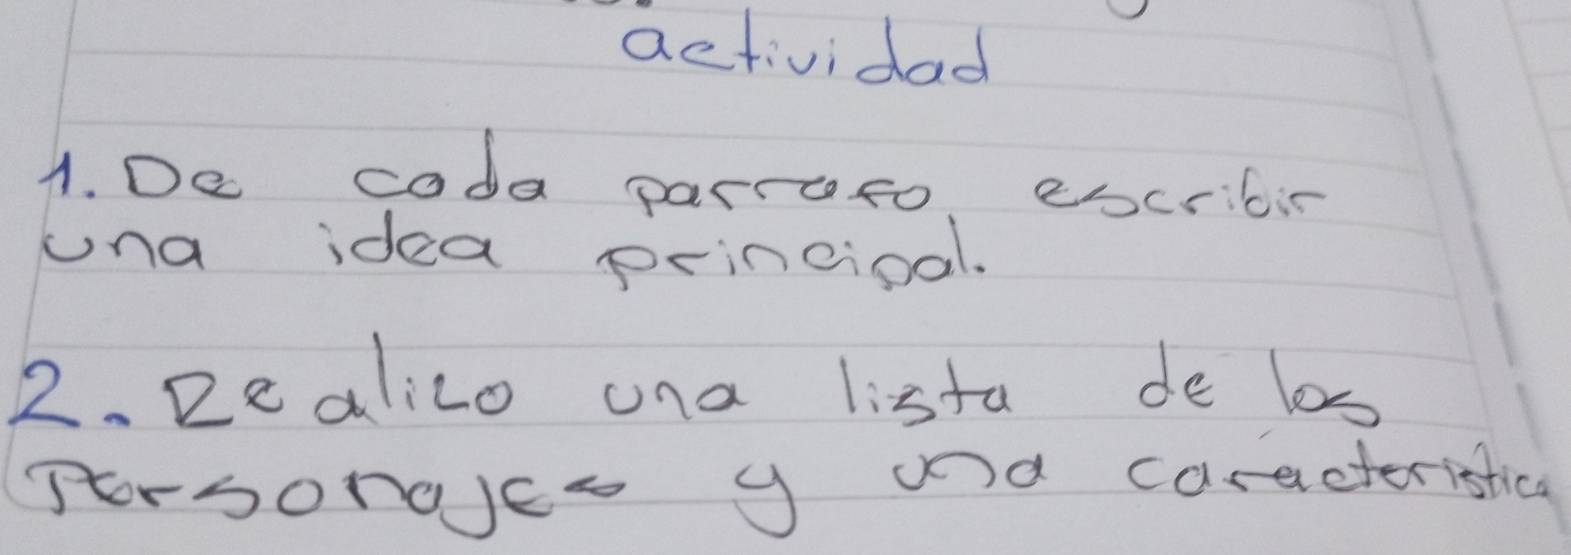 actividad
1. De cada parrafo escribir
una idea principal.
2. Realizo una lista de los
Personajes y una característica